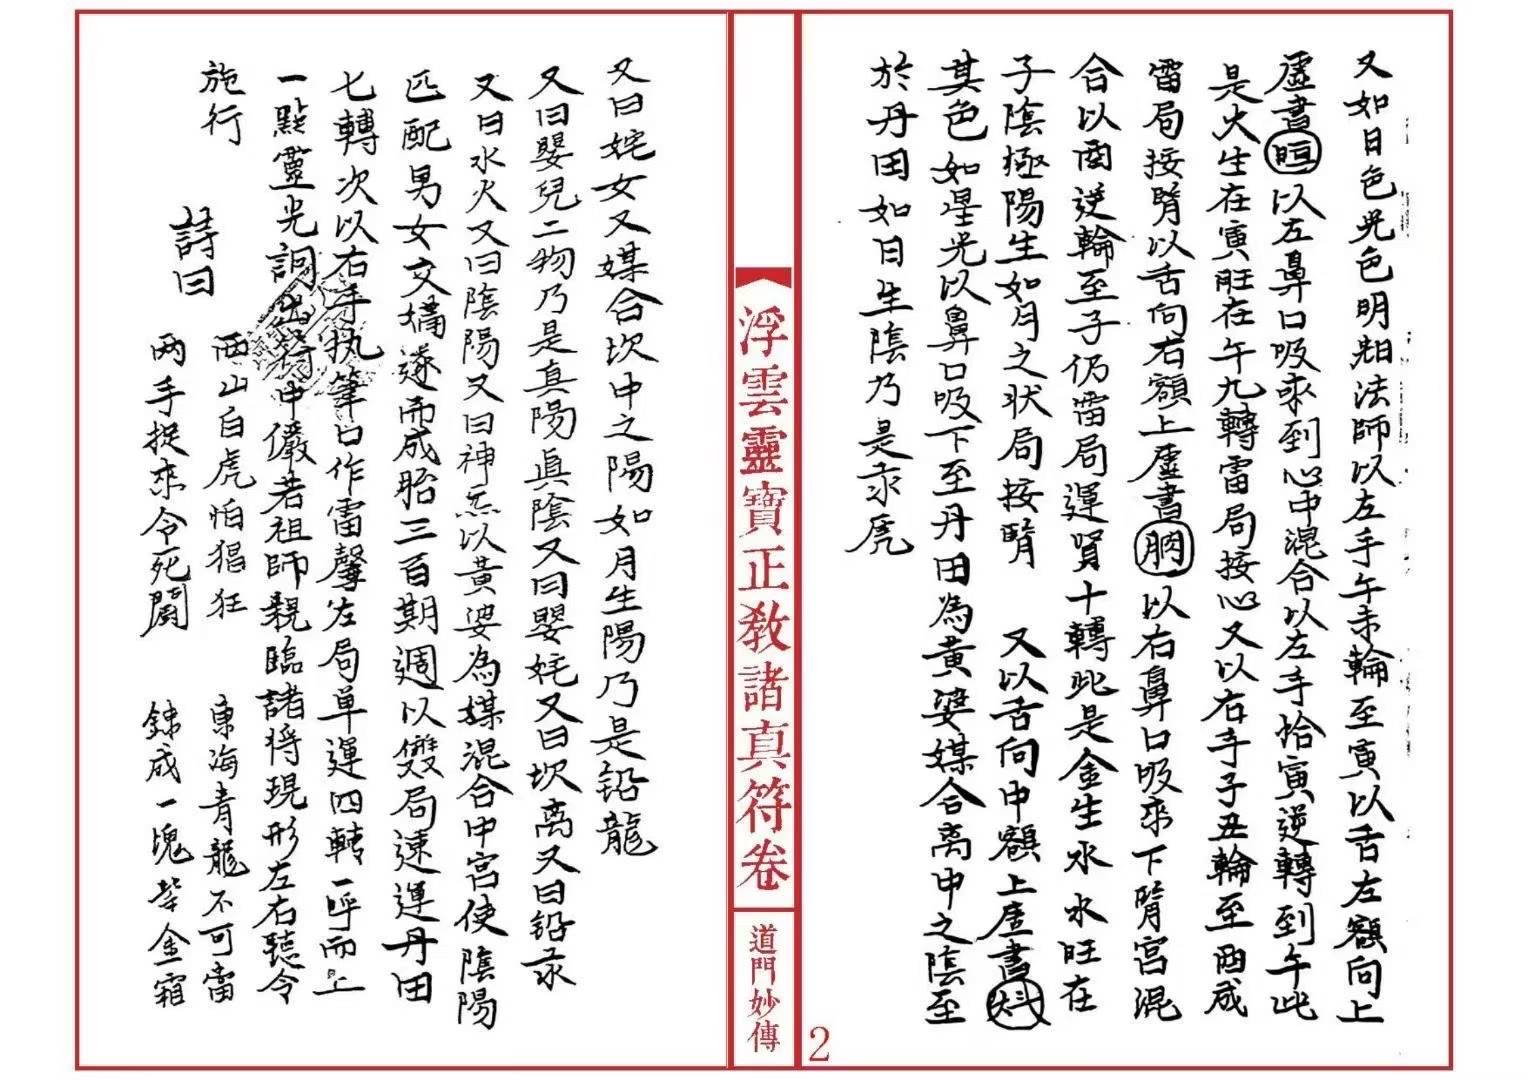 又如日色光色明朗法師以左手午未輪至寅以舌左額向上
虛書㫜以左鼻口吸氶到心中混合以左手拾寅逆轉到午此
是火生在寅旺在午九轉雷局按心又以右手子丑輪至酉成
雷局按腎以舌向右額上虛書以右鼻口吸來下腎宮混
合以酉逆輪至子仍雷局運腎十轉此是金生水水旺在
子陰極陽生如月之状局按腎 又以舌向中額上虛書
其色如星光以鼻口吸下至丹田為黃婆媒合离中之陰至
於丹田如日生陰乃是汞虎
浮雲靈寶正教諸真符卷
道門妙傳
2
又曰姹女又媒合坎中之陽如月生陽乃是铅龍
又曰嬰兒二物乃是真陽真陰又曰嬰姹又曰坎离又曰铅汞
又曰水火又曰陰陽又曰神炁以黃婆為媒混合中宮使陰陽
匹配男女交媾遂而成胎三百期週以雙局速運丹田
七轉次以右手执筆口作雷聲左局单運四轉一呼而上
一點靈光詞出符中儼若祖師親臨諸将現形左右聽令
施行
詩曰
西山白虎怕猖狂 東海青龍不可當
两手捉來令死鬪 鍊成一塊紫金霜